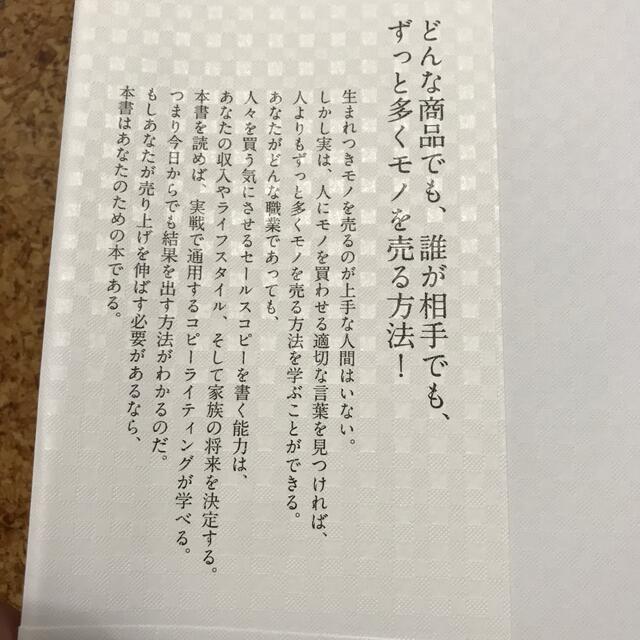 どんな商品でも、誰が相手でも、
ずっと多くモノを売る方法！
生まれつきモノを売るのが上手な人間はいない。
しかし実は、人にモノを買わせる適切な言葉を見つければ、
人よりもずっと多くモノを売る方法を学ぶことができる。
あなたがどんな職業であっても、
人々を買う気にさせるセールスコピーを書く能力は、
あなたの収入やライフスタイル、そして家族の将来を決定する。
本書を読めば、実戦で通用するコピーライティングが学べる。
つまり今日からでも結果を出す方法がわかるのだ。
もしあなたが売り上げを伸ばす必要があるなら、
本書はあなたのための本である。